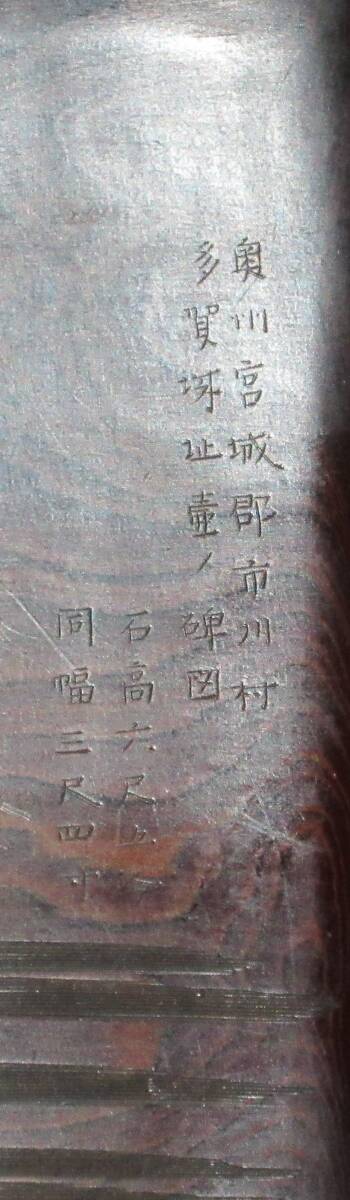 奥州宮城郡市川村
多賀城址壷ノ碑図
石高六尺五寸
同幅三尺四寸